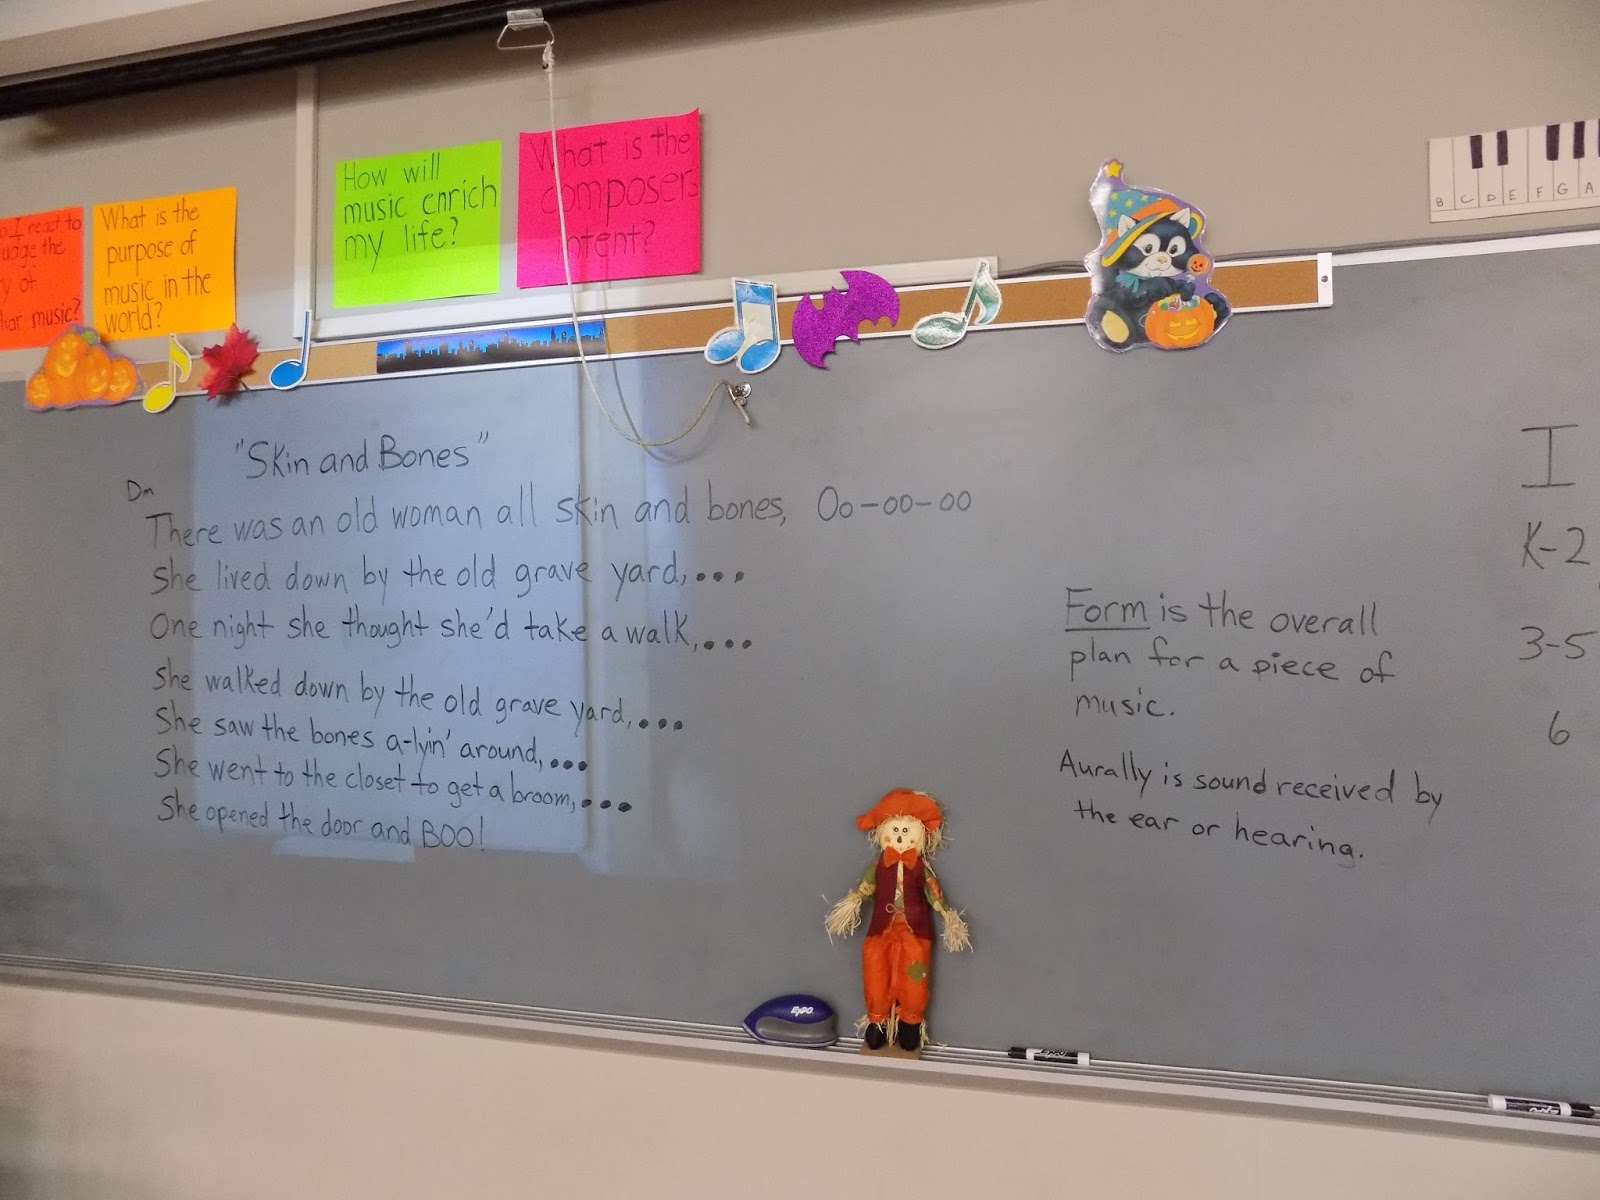 o I react to
udge the
y of
liar music?
What is the
purpose of
music in the
world?
How will
music enrich
my life?
What is the
composers
intent?
B C D E F G A
"Skin and Bones"
Dm
There was an old woman all skin and bones, Oo-oo-oo
She lived down by the old grave yard,...
One night she thought she'd take a walk,...
She walked down by the old grave yard,...
She saw the bones a-lyin' around,...
She went to the closet to get a broom,...
She opened the door and BOO!
Form is the overall
plan for a piece of
music.
Aurally is sound received by
the ear or hearing.
I
K-2
3-5
6
EXPO
EXPO